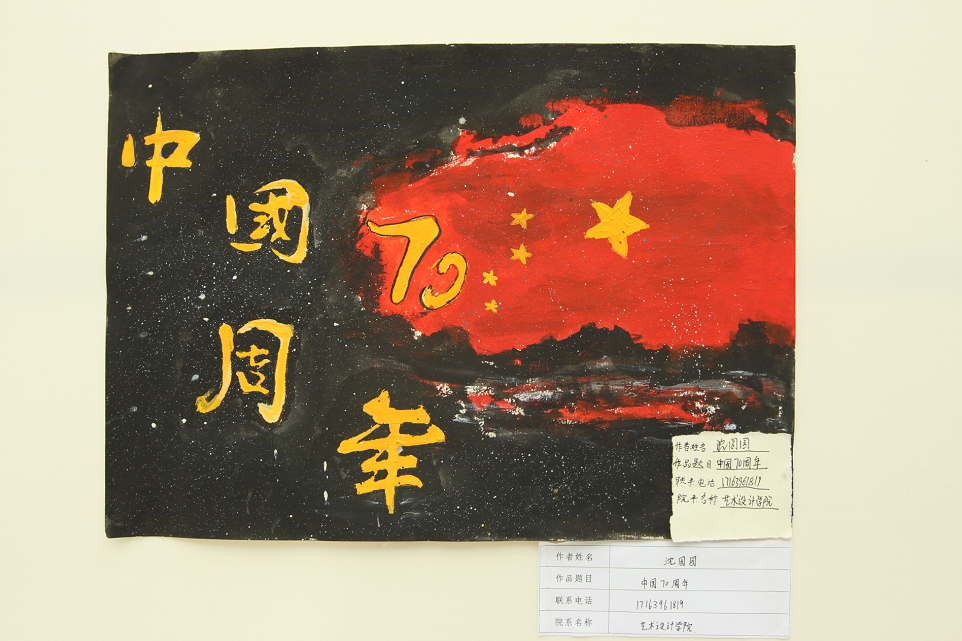 中
國
周
年
70
作者姓名 沈囡囡
作品题目 中國70周年
联系电话 17163961819
院系名称 艺术设计学院
作者姓名 沈囡囡
作品题目 中国70周年
联系电话 17163961819
院系名称 艺术设计学院